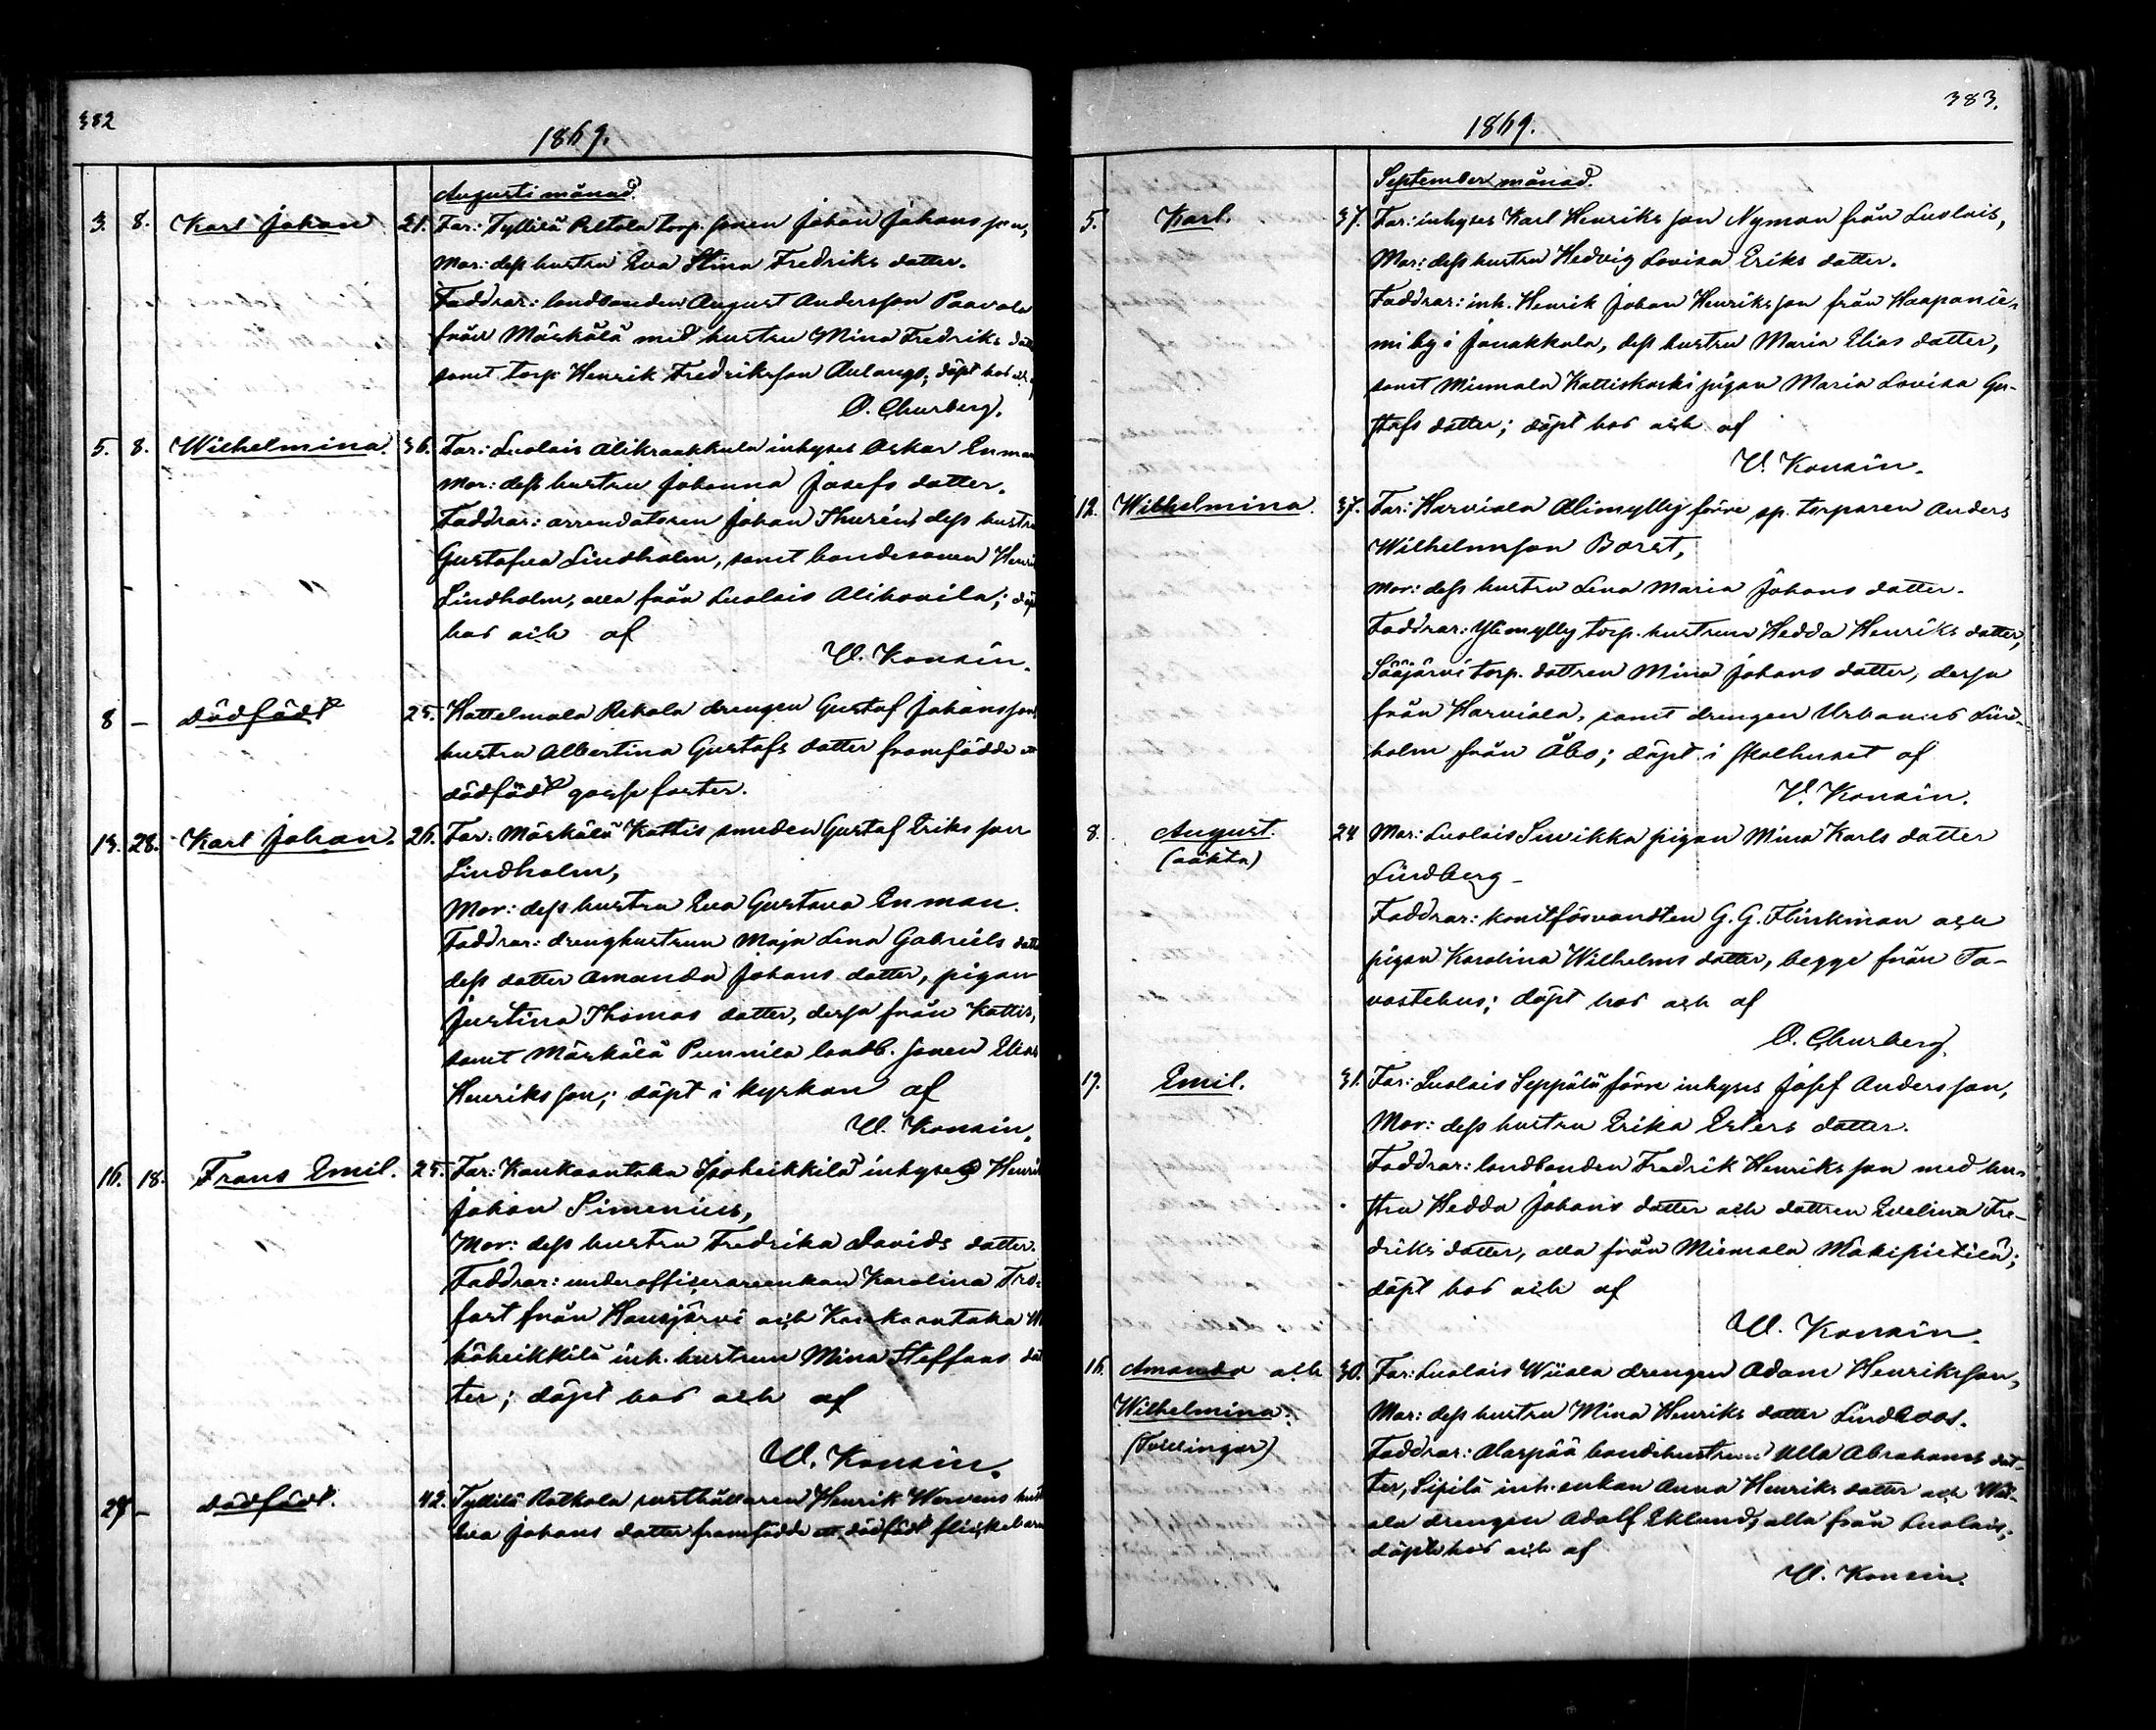 382
1869.
Augusti månad.
3. 8. Karl Johan 21. Far: Tyllilä Peltola torp. sonen Johan Johansson,
Mor: dess hustru Eva Stina Fredriks dotter.
Faddrar: landbonden August Andersson Paavola
från Mäskälä med hustru Mina Fredriks
samt torp. Henrik Fredriksson Aulango; döpt hos och
O. Churberg.
5. 8. Wilhelmina. 36. Far: Luolais Alikraakkula inhyses Oskar Enman
Mor: dess hustru Johanna Josefs dotter.
Faddrar: arrendatoren Johan Thurén, dess hustru
Gustafva Lindholm, samt bondesonen
Lindholm, alla från Luolais Alihovila;
hos och af
V. Konsin.
8 – dödfödt 25. Kattelmala Rekola drengen Gustaf Johanssons
hustru Albertina Gustafs dotter framfödde
dödfödt gosse foster.
13. 28. Karl Johan. 26. Far: Mäskälä Kattis smeden Gustaf Eriksson
Lindholm,
Mor: dess hustru Eva Gustava Enman.
Faddrar: drenghustrun Maja Lena Gabriels
dess dotter Amanda Johans dotter, pigan
Justina Thomas dotter, dessa från Kattis,
samt Mäskälä Punnila landb. sonen Elias
Henriksson; döpt i kyrkan af
V. Konsin.
16. 18. Frans Emil. 25. Far: Kankaantaka Isoheikkilä inhyses Henrik
Johan Simenius,
Mor: dess hustru Fredrika Davids dotter.
Faddrar: underofficerareenkan Karolina
från Hausjärvi och Kankaantaka
häheikkilä inh. hustrun Mina Steffans dot
ter; döpt hos och af
V. Konsin.
– dödfödt. 42. Tyllilä Ratkola rusthållaren Henrik
Eva Johans dotter framfödde ett dödfödt flickebarn
383.
1869.
September månad.
5. Karl. 37. Far: inhyses Karl Henriksson Nyman från Luolais,
Mor: dess hustru Hedvig Lovisa Eriks dotter.
Faddrar: inh. Henrik Johan Henriksson från Haapanie-
mi by i Janakkala, dess hustru Maria Elias dotter,
samt Miemala Kattiskoski pigan Maria Lovisa Gu-
stafs dotter; döpt hos och af
V. Konsin.
12. Wilhelmina. 37. Far: Harviala Alimylly förre sp. torparen Anders
Wilhelmsson Borst,
Mor: dess hustru Lena Maria Johans dotter.
Faddrar: Ylimylly torp. hustrun Hedda Henriks dotter,
Sääjärvi torp. dottren Mina Johans dotter, dessa
från Harviala, samt drengen Urbanus Lind-
holm från Åbo; döpt i skolhuset af
V. Konsin.
8. August. 24 Mor: Luolais Suvikka pigan Mina Karls dotter
(oäkta) Lindberg –
Faddrar: konstförvandten G. G. Flinkman och
pigan Karolina Wilhelms dotter, begge från Ta-
vastehus; döpt hos och af
O. Churberg.
17. Emil. 31. Far: Luolais Seppälä förre inhyses Josef Andersson,
Mor: dess hustru Erika Esters dotter.
Faddrar: landbonden Fredrik Henriksson med hu-
stru Hedda Johans dotter och dottren Evelina Fre-
driks dotter, alla från Miemala Mäkipietilä;
döpt hos och af
V. Konsin.
16. Amanda och 30. Far: Luolais Wiiala drengen Adam Henriksson,
Wilhelmina. Mor: dess hustru Mina Henriks dotter Lindroos.
(Tvillingar) Faddrar: Alaspää bondehustrun Ulla Abrahams dot-
ter, Sipilä inh. enkan Anna Henriks dotter och Wii-
ala drengen Adolf Eklund, alla från Luolais;
döpte hos och af
V. Konsin.